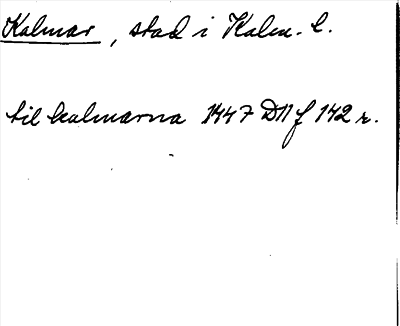 Kalmar, stad i Kalm. l.
til kalmarna 1447 DN f 142 r.